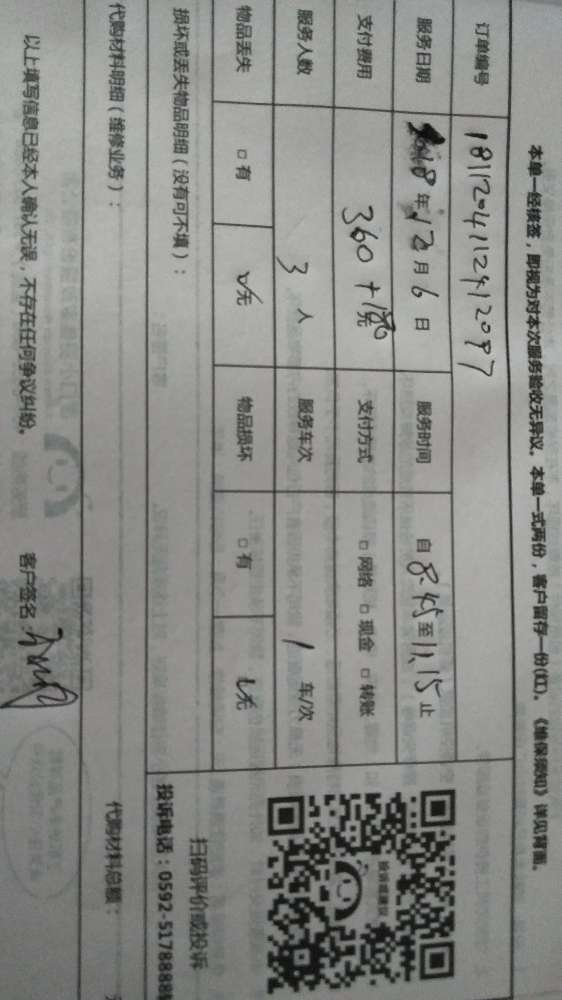 本单一经核签，即视为对本次服务验收无异议。本单一式两份，客户留存一份(红)。《维保须知》详见背面。
订单编号 1811204112412097
服务日期 18年12月6日 服务时间 自8:45至11:15止
支付费用 360+180元 支付方式 □网络 □现金 □转账
服务人数 3人 服务车次 1车/次
物品丢失 □有 无 物品损坏 □有 无
损坏或丢失物品明细（没有可不填）：
投诉或建议
扫码评价或投诉
投诉电话：0592-5178888
代购材料明细（维修业务）： 代购材料总额：
以上填写信息已经本人确认无误，不存在任何争议纠纷。 客户签名：